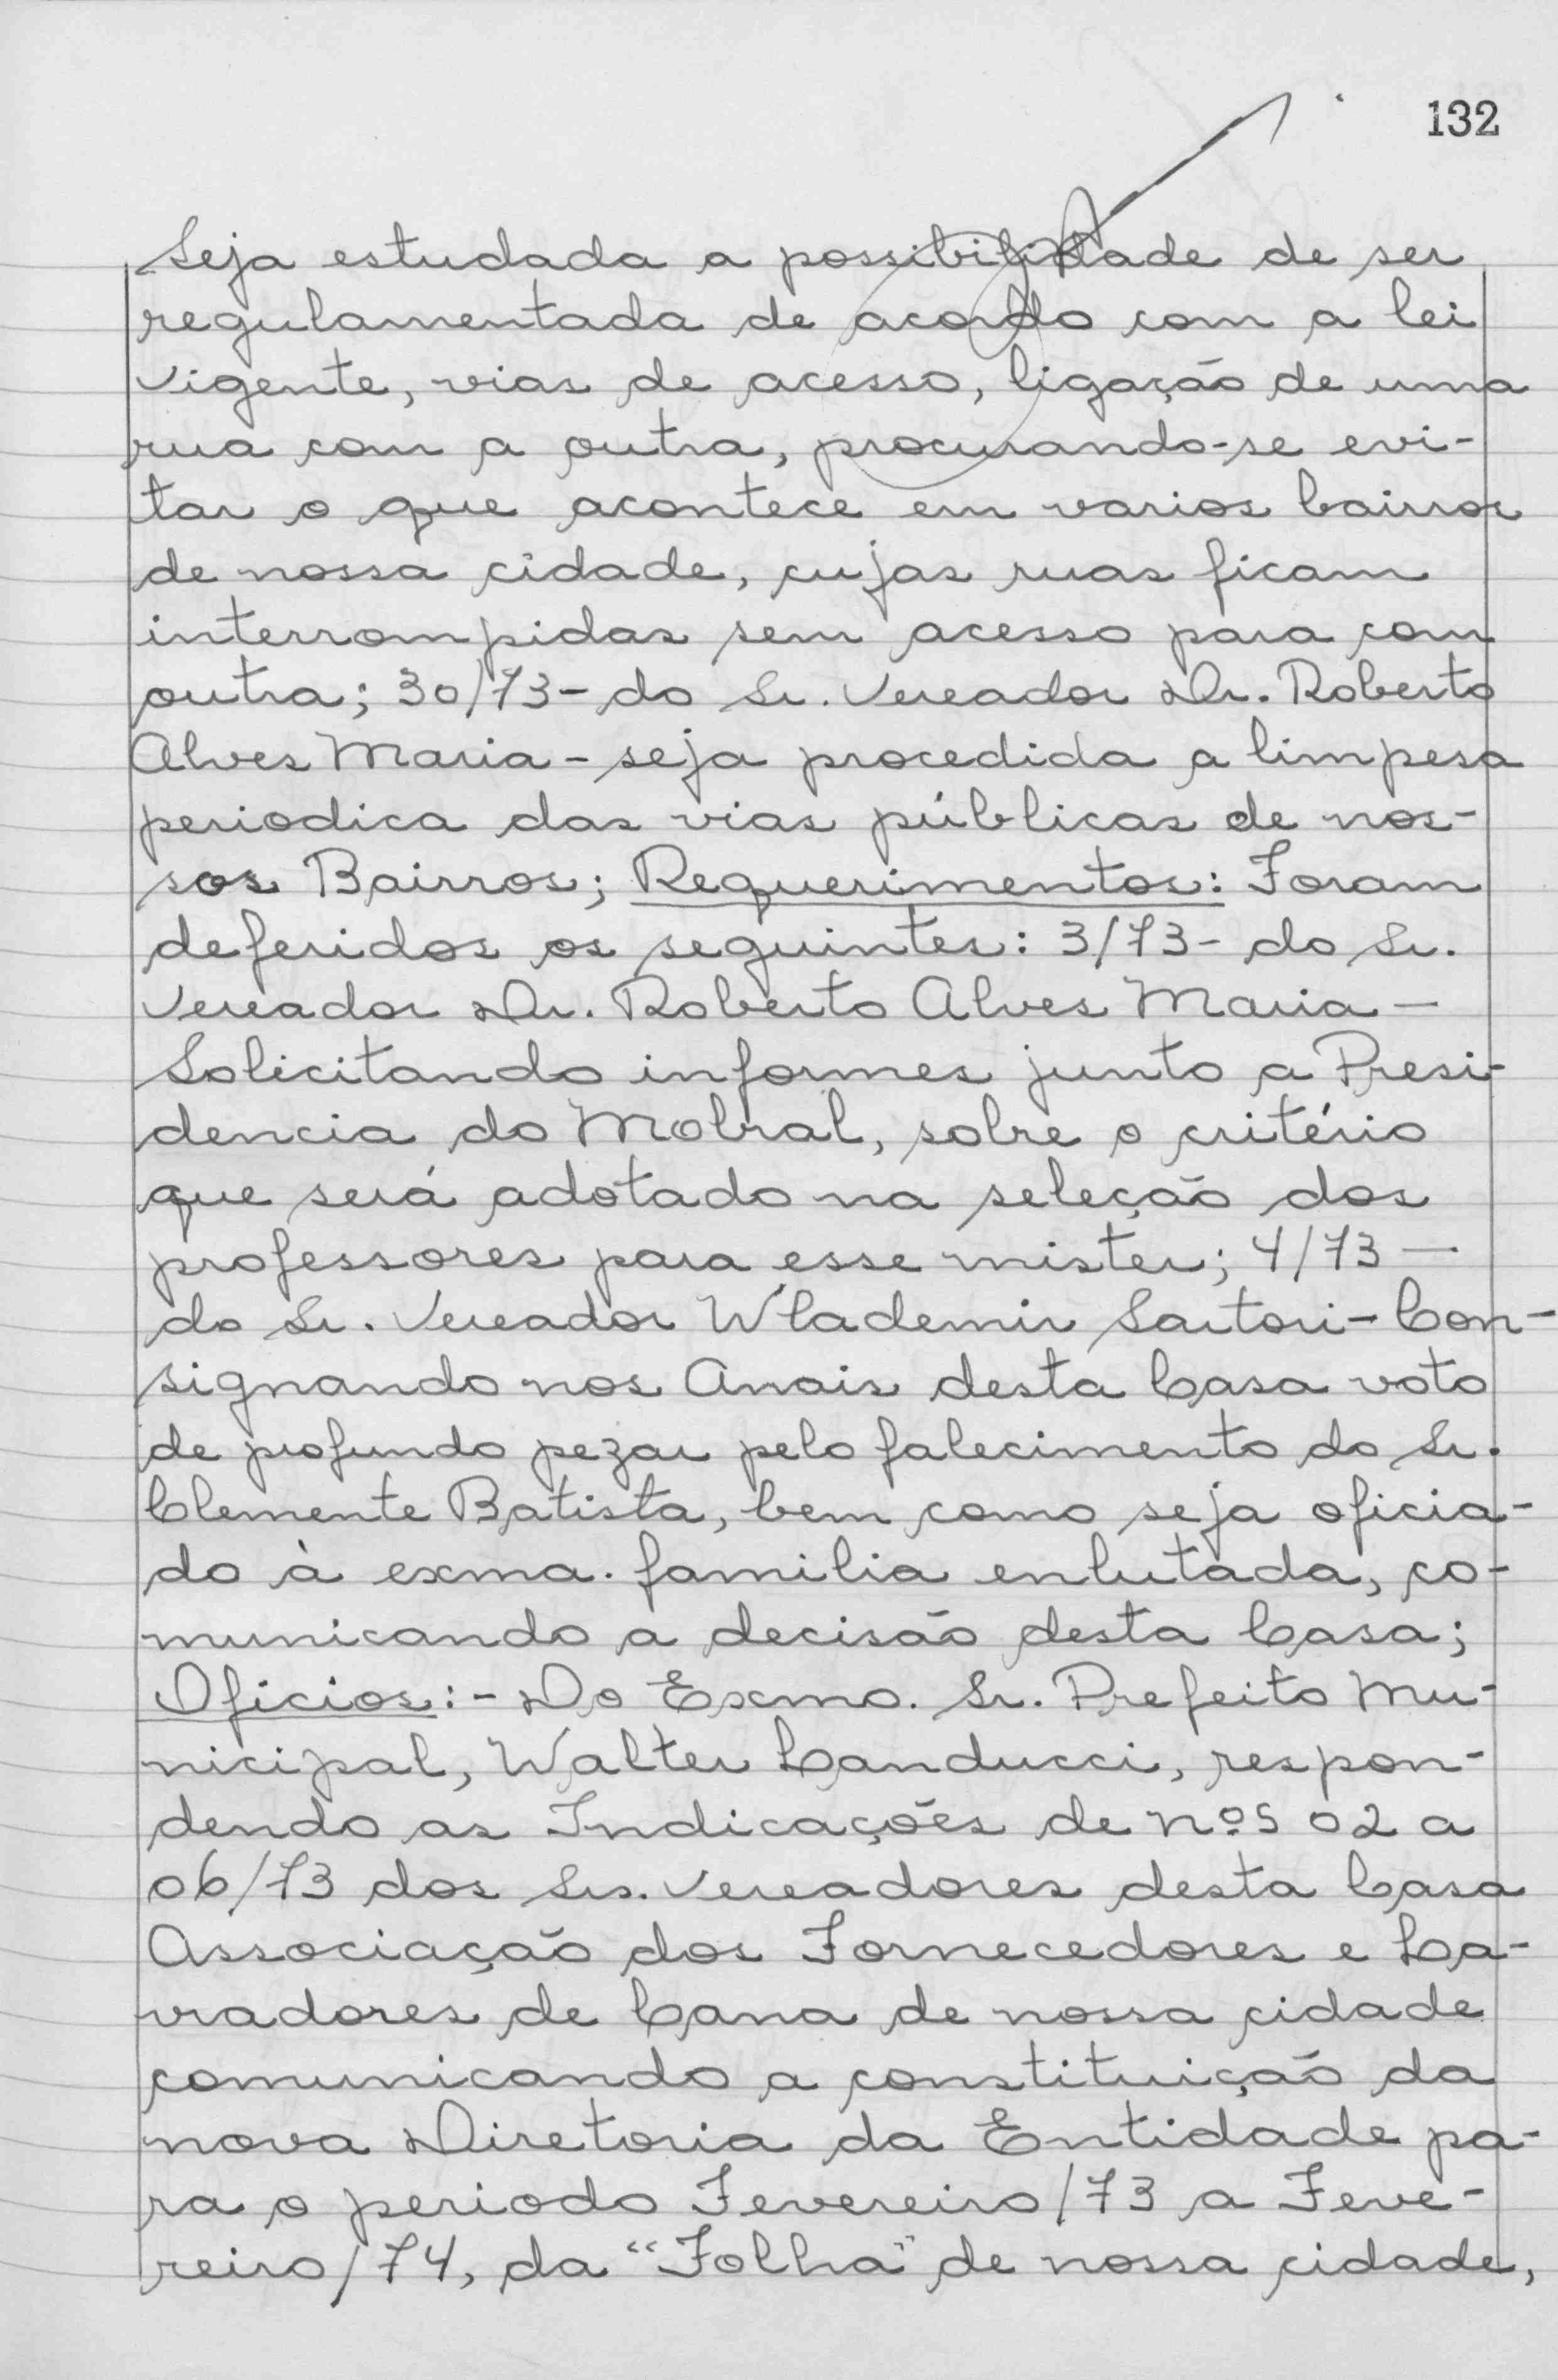 132
Seja estudada a possibilidade de ser
regulamentada de acordo com a lei
vigente, vias de acesso, ligação de uma
rua com a outra, procurando-se evi-
tar o que acontece em varios bairros
de nossa cidade, cujas ruas ficam
interrompidas sem acesso para com
outra; 30/73- do Sr. Vereador Dr. Roberto
Alves Maria - seja procedida a limpesa
periodica das vias públicas de nos-
sos Bairros; Requerimentos: Foram
deferidos os seguintes: 3/73- do Sr.
Vereador Dr. Roberto Alves Maria -
Solicitando informes junto a Presi-
dencia do Mobral, sobre o critério
que será adotado na seleção dos
professores para esse mister; 4/73 -
do Sr. Vereador Wlademir Sartori - Con-
signando nos Anais desta Casa voto
de profundo pezar pelo falecimento do Sr.
Clemente Batista, bem como seja oficia-
do à exma. familia enlutada, co-
municando a decisão desta Casa;
Oficios:- Do Exmo. Sr. Prefeito Mu-
nicipal, Walter Canducci, respon-
dendo as Indicações de nºs 02 a
06/73 dos Srs. Vereadores desta Casa
Associação dos Fornecedores e La-
vradores de Cana de nossa cidade
comunicando a constituição da
nova Diretoria da Entidade pa-
ra o periodo Fevereiro/73 a Feve-
reiro/74, da "Folha" de nossa cidade,